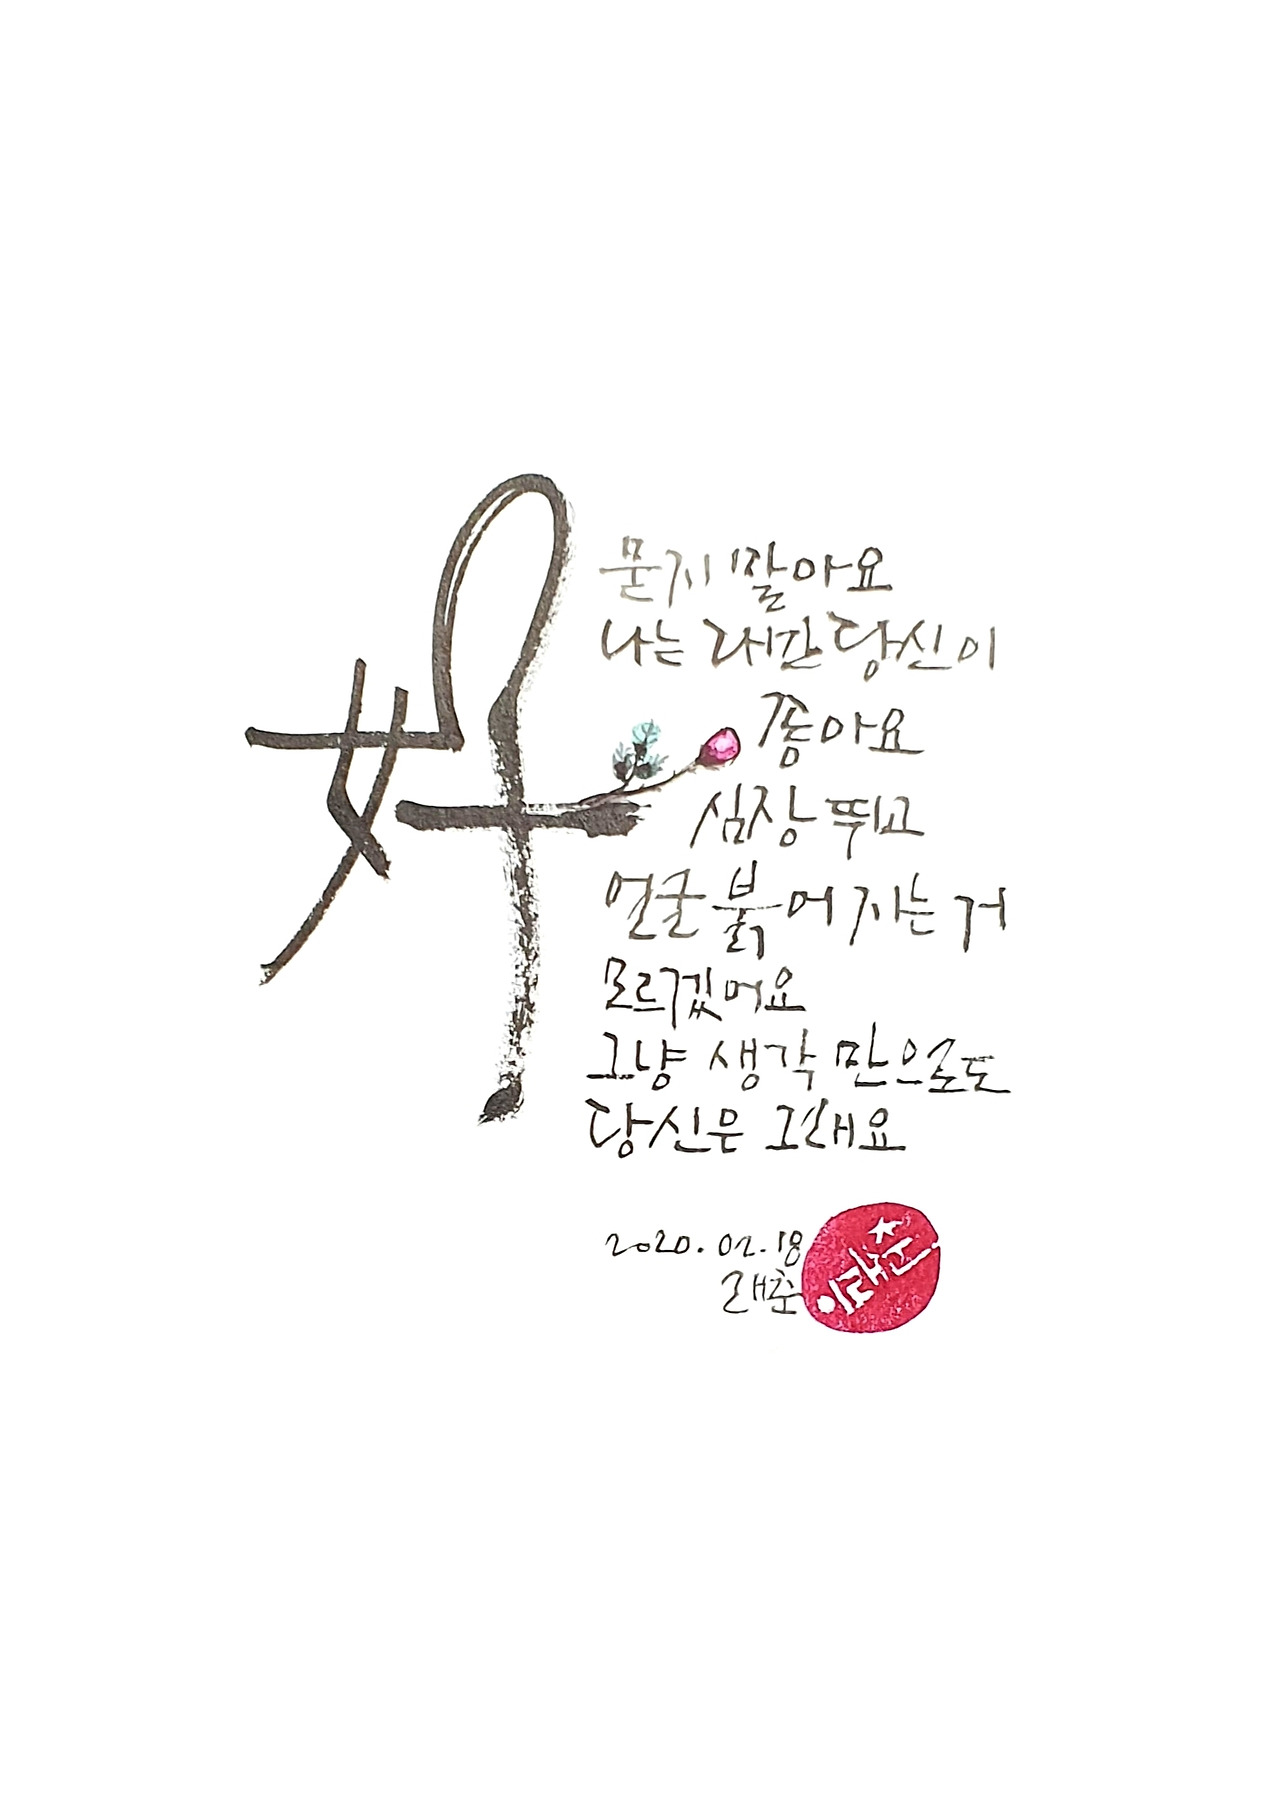 好
묻지 말아요
나는 그냥 당신이
좋아요
심장 뛰고
얼굴 붉어 지는 거
모르겠어요
그냥 생각 만으로도
당신은 그래요
2020. 02. 18
래춘
이래춘